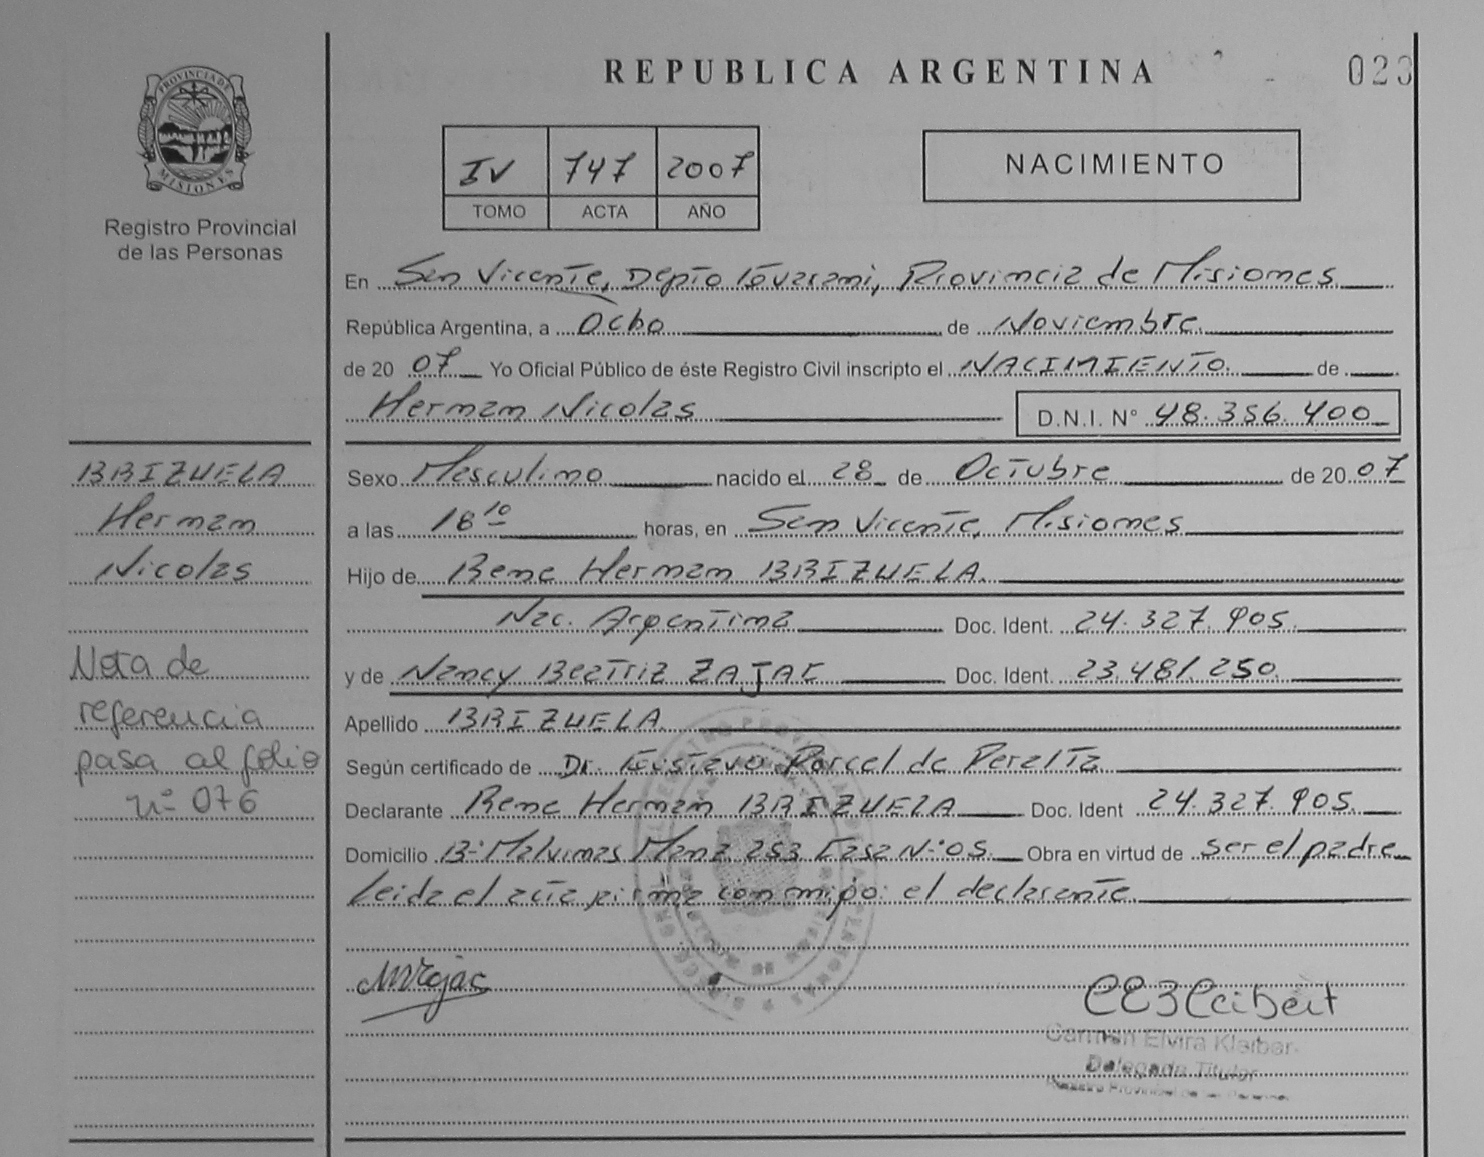 REPUBLICA ARGENTINA
023
PROVINCIA DE
MISIONES
Registro Provincial
de las Personas
IV 747 2007
TOMO ACTA AÑO
NACIMIENTO
En San Vicente, Depto Guarani, Provincia de Misiones
República Argentina, a Ocho de Noviembre
de 20 07 Yo Oficial Público de éste Registro Civil inscripto el NACIMIENTO de
Hernan Nicolas D.N.I. N° 48.356.400
BRIZUELA
Hernan
Nicolas
Sexo Masculino nacido el 28 de Octubre de 20 07
a las 18 10 horas, en San Vicente, Misiones
Hijo de Rene Hernan BRIZUELA
Nac. Argentina Doc. Ident. 24.327.905
y de Nancy Beatriz ZAJAC Doc. Ident. 23.481.250
Apellido BRIZUELA
Según certificado de Dr. Gustavo Porcel de Peralta
Declarante Rene Hernan BRIZUELA Doc. Ident 24.327.905
Domicilio B° Malvinas Manz 253 Casa N° 05 Obra en virtud de ser el padre
Leida el acta firma conmigo: el declarante
Nota de
referencia
pasa al folio
n° 076
Carmen Elvira Kleiber
Delegada Titular
Registro Provincial de las Personas